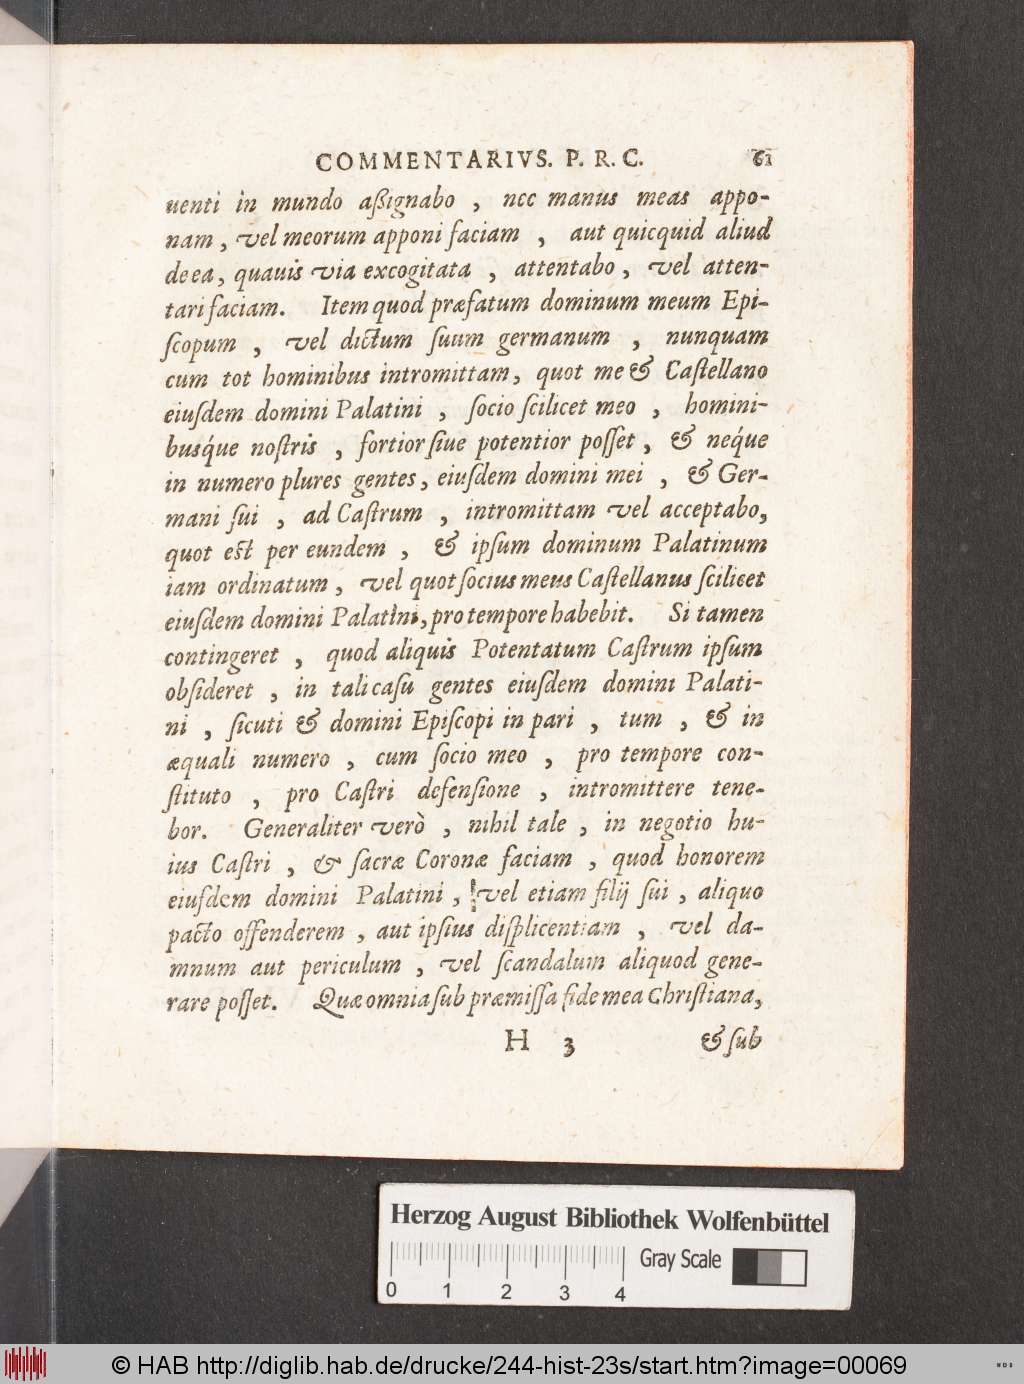 COMMENTARIVS. P. R. C. 61
uenti in mundo aßignabo , nec manus meas appo-
nam, vel meorum apponi faciam , aut quicquid aliud
de ea, quauis via excogitata , attentabo, vel atten-
tari faciam. Item quod præfatum dominum meum Epi-
ſcopum , vel dictum ſuum germanum , nunquam
cum tot hominibus intromittam, quot me & Caſtellano
eiuſdem domini Palatini , ſocio ſcilicet meo , homini-
busq́ue noſtris , fortior ſiue potentior poſſet, & neq́ue
in numero plures gentes, eiuſdem domini mei , & Ger-
mani ſui , ad Caſtrum , intromittam vel acceptabo,
quot eſt per eundem , & ipſum dominum Palatinum
iam ordinatum, vel quot ſocius meus Caſtellanus ſcilicet
eiuſdem domini Palatini, pro tempore habebit. Si tamen
contingeret , quod aliquis Potentatum Caſtrum ipſum
obſideret , in tali caſu gentes eiuſdem domini Palati-
ni , ſicuti & domini Epiſcopi in pari , tum , & in
æquali numero , cum ſocio meo , pro tempore con-
ſtituto , pro Caſtri defenſione , intromittere tene-
bor. Generaliter verò , nihil tale , in negotio hu-
ius Caſtri , & ſacræ Coronæ faciam , quod honorem
eiuſdem domini Palatini , vel etiam filij ſui , aliquo
pacto offenderem , aut ipſius diſplicentiam , vel da-
mnum aut periculum , vel ſcandalum aliquod gene-
rare poſſet. Quæ omnia ſub præmiſſa fide mea Chriſtiana,
H 3 & ſub
Herzog August Bibliothek Wolfenbüttel
Gray Scale
0 1 2 3 4
© HAB http://diglib.hab.de/drucke/244-hist-23s/start.htm?image=00069